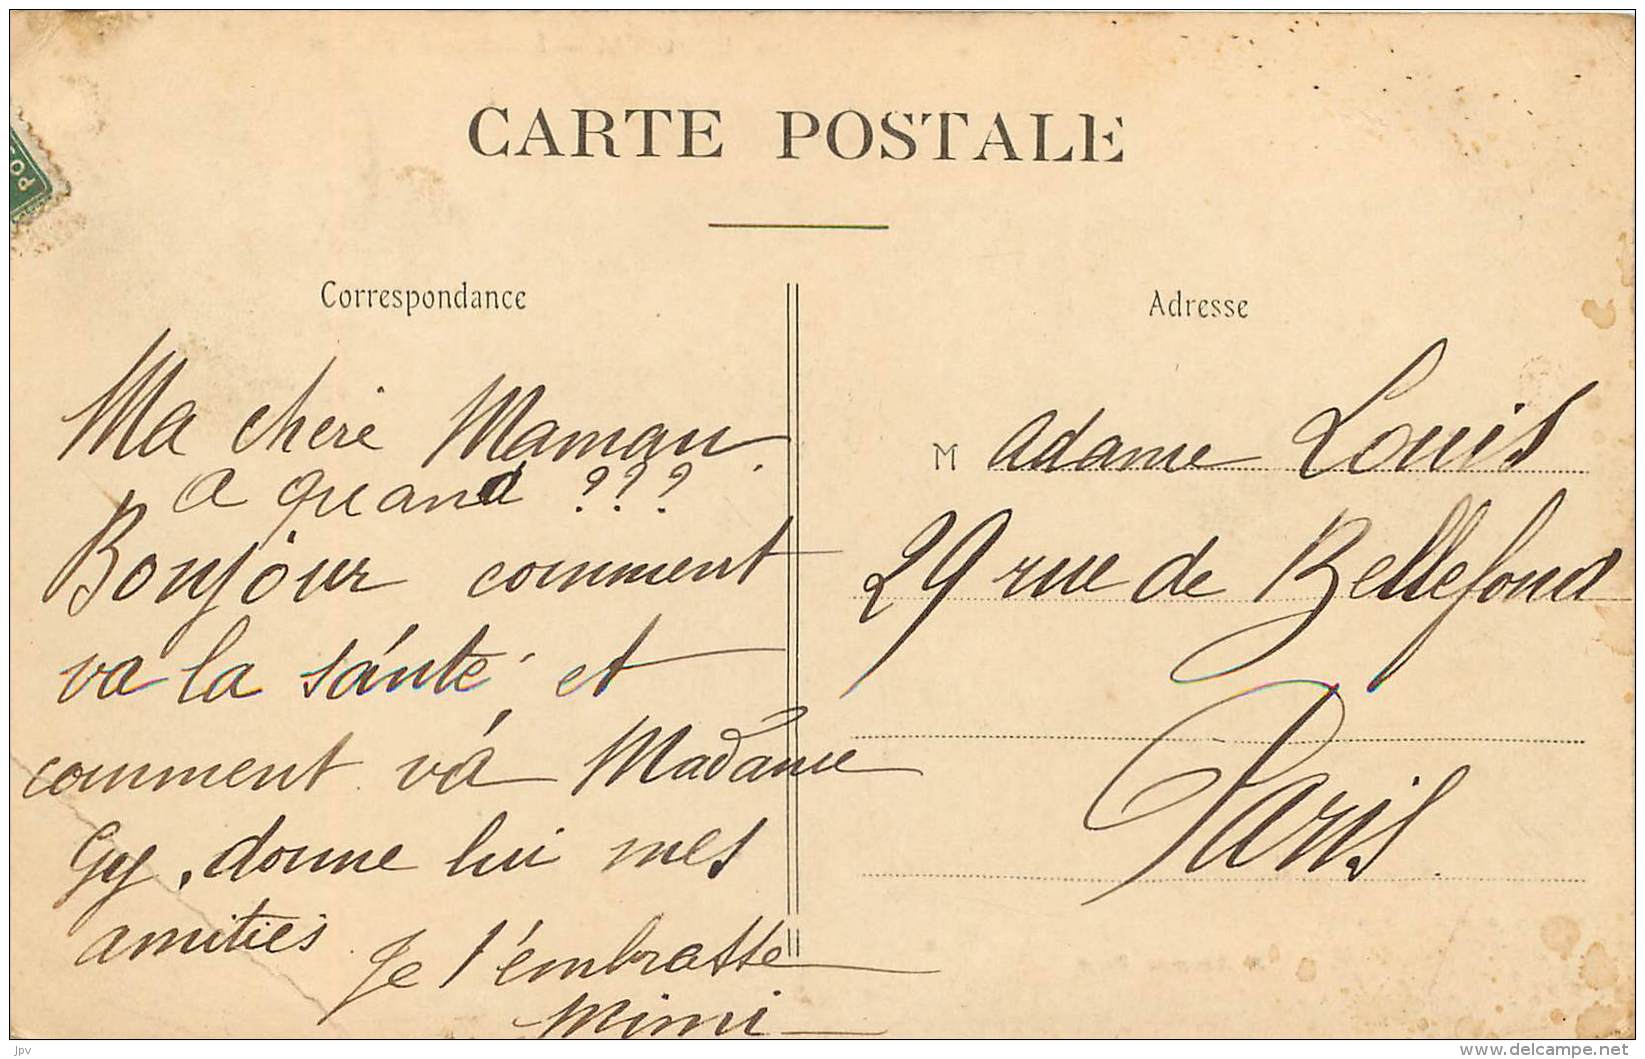 CARTE POSTALE
PO
Correspondance
Ma chère Maman.
a quand ???
Bonjour comment
va la sánté et
comment vá Madame
Gy, donne lui mes
amitiés. Je t'embrasse
Mimi
Adresse
Madame Louis
29 rue de Bellefond
Paris.
jpv
www.delcampe.net